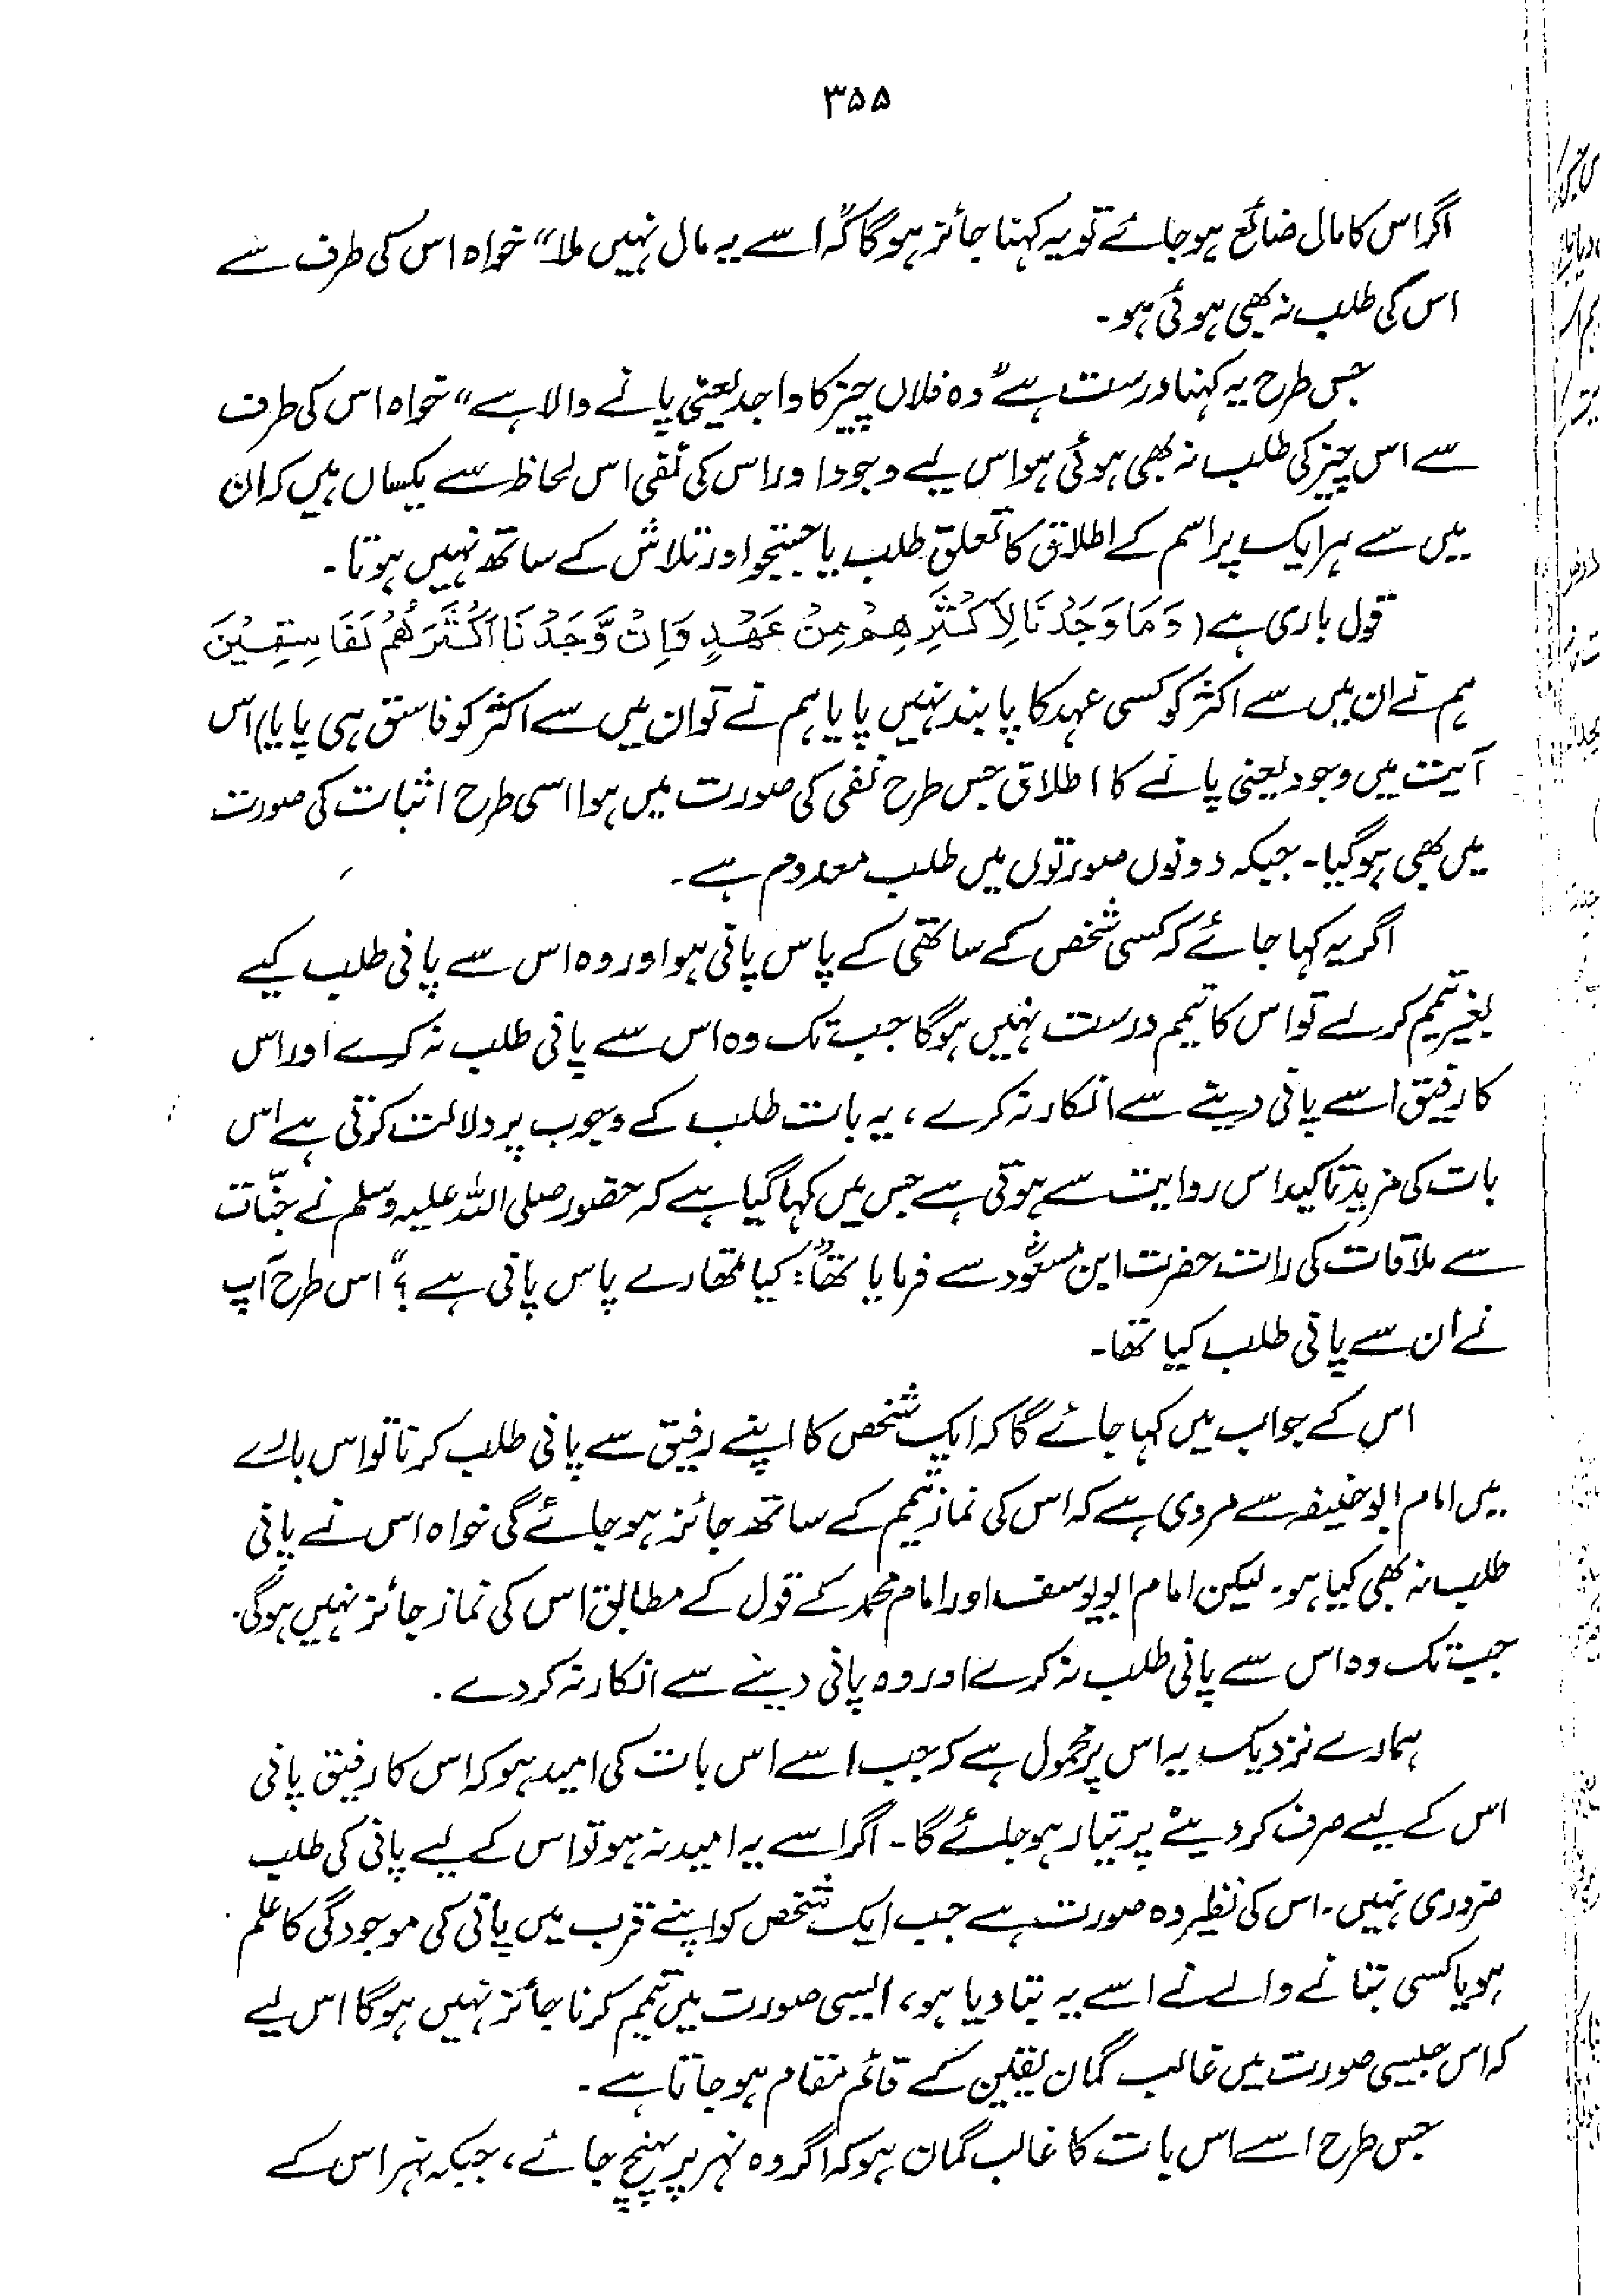 ۳۵۵
اگر اس کا مال ضائع ہو جائے تو یہ کہنا جائز ہوگا کہ "اسے یہ مال نہیں ملا" خواہ اس کی طرف سے
اس کی طلب نہ بھی ہوئی ہو۔
جس طرح یہ کہنا درست ہے "وہ فلاں چیز کا واجد یعنی پانے والا ہے" خواہ اس کی طرف
سے اس چیز کی طلب نہ بھی ہوئی ہو اس لیے وجود اور اس کی نفی اس لحاظ سے یکساں ہیں کہ ان
میں سے ہر ایک پر اسم کے اطلاق کا تعلق طلب یا جستجو اور تلاش کے ساتھ نہیں ہوتا۔
قول باری ہے (وَمَا وَجَدْنَا لِاَكْثَرِهِمْ مِنْ عَهْدٍ وَاِنْ وَّجَدْنَا اَكْثَرَهُمْ لَفَاسِقِيْنَ
ہم نے ان میں سے اکثر کو کسی عہد کا پابند نہیں پایا ہم نے تو ان میں سے اکثر کو فاسق ہی پایا) اس
آیت میں وجود یعنی پانے کا اطلاق جس طرح نفی کی صورت میں ہوا اسی طرح اثبات کی صورت
میں بھی ہوگیا۔ جبکہ دونوں صورتوں میں طلب معدوم ہے۔
اگر یہ کہا جائے کہ کسی شخص کے ساتھی کے پاس پانی ہو اور وہ اس سے پانی طلب کیے
بغیر تیمم کرلے تو اس کا تیمم درست نہیں ہوگا جب تک وہ اس سے پانی طلب نہ کرے اور اس
کا رفیق اسے پانی دینے سے انکار نہ کرے، یہ بات طلب کے وجوب پر دلالت کرتی ہے اس
بات کی مزید تاکید اس روایت سے ہوتی ہے جس میں کہا گیا ہے کہ حضور صلی اللہ علیہ وسلم نے جنّات
سے ملاقات کی رات حضرت ابن مسعودؓ سے فرمایا تھا: "کیا تمھارے پاس پانی ہے؟" اس طرح آپ
نے ان سے پانی طلب کیا تھا۔
اس کے جواب میں کہا جائے گا کہ ایک شخص کا اپنے رفیق سے پانی طلب کرنا تو اس بارے
میں امام ابو حنیفہ سے مروی ہے کہ اس کی نماز تیمم کے ساتھ جائز ہو جائے گی خواہ اس نے پانی
طلب نہ بھی کیا ہو۔ لیکن امام ابو یوسف اور امام محمد کے قول کے مطابق اس کی نماز جائز نہیں ہوگی۔
جب تک وہ اس سے پانی طلب نہ کرے اور وہ پانی دینے سے انکار نہ کردے۔
ہمارے نزدیک یہ اس پر محمول ہے کہ جب اسے اس بات کی امید ہو کہ اس کا رفیق پانی
اس کے لیے صرف کردینے پر تیار ہو جائے گا۔ اگر اسے یہ امید نہ ہو تو اس کے لیے پانی کی طلب
ضروری نہیں۔ اس کی نظیر وہ صورت ہے جب ایک شخص کو اپنے قرب میں پانی کی موجودگی کا علم
ہو یا کسی بتانے والے نے اسے یہ بتا دیا ہو، ایسی صورت میں تیمم کرنا جائز نہیں ہوگا اس لیے
کہ اس جیسی صورت میں غالب گمان یقین کے قائم مقام ہو جاتا ہے۔
جس طرح اسے اس بات کا غالب گمان ہو کہ اگر وہ نہر پر پہنچ جائے، جبکہ نہر اس کے